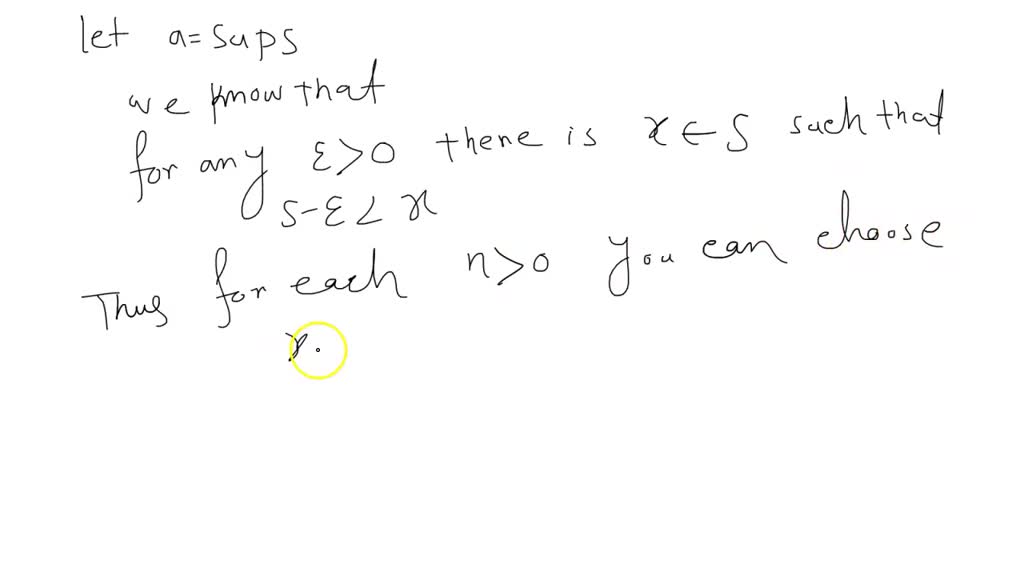 let a = sup s
we know that
for any ε > 0 there is x ∈ S such that
s - ε < x
Thus for each n > 0 you can choose
x